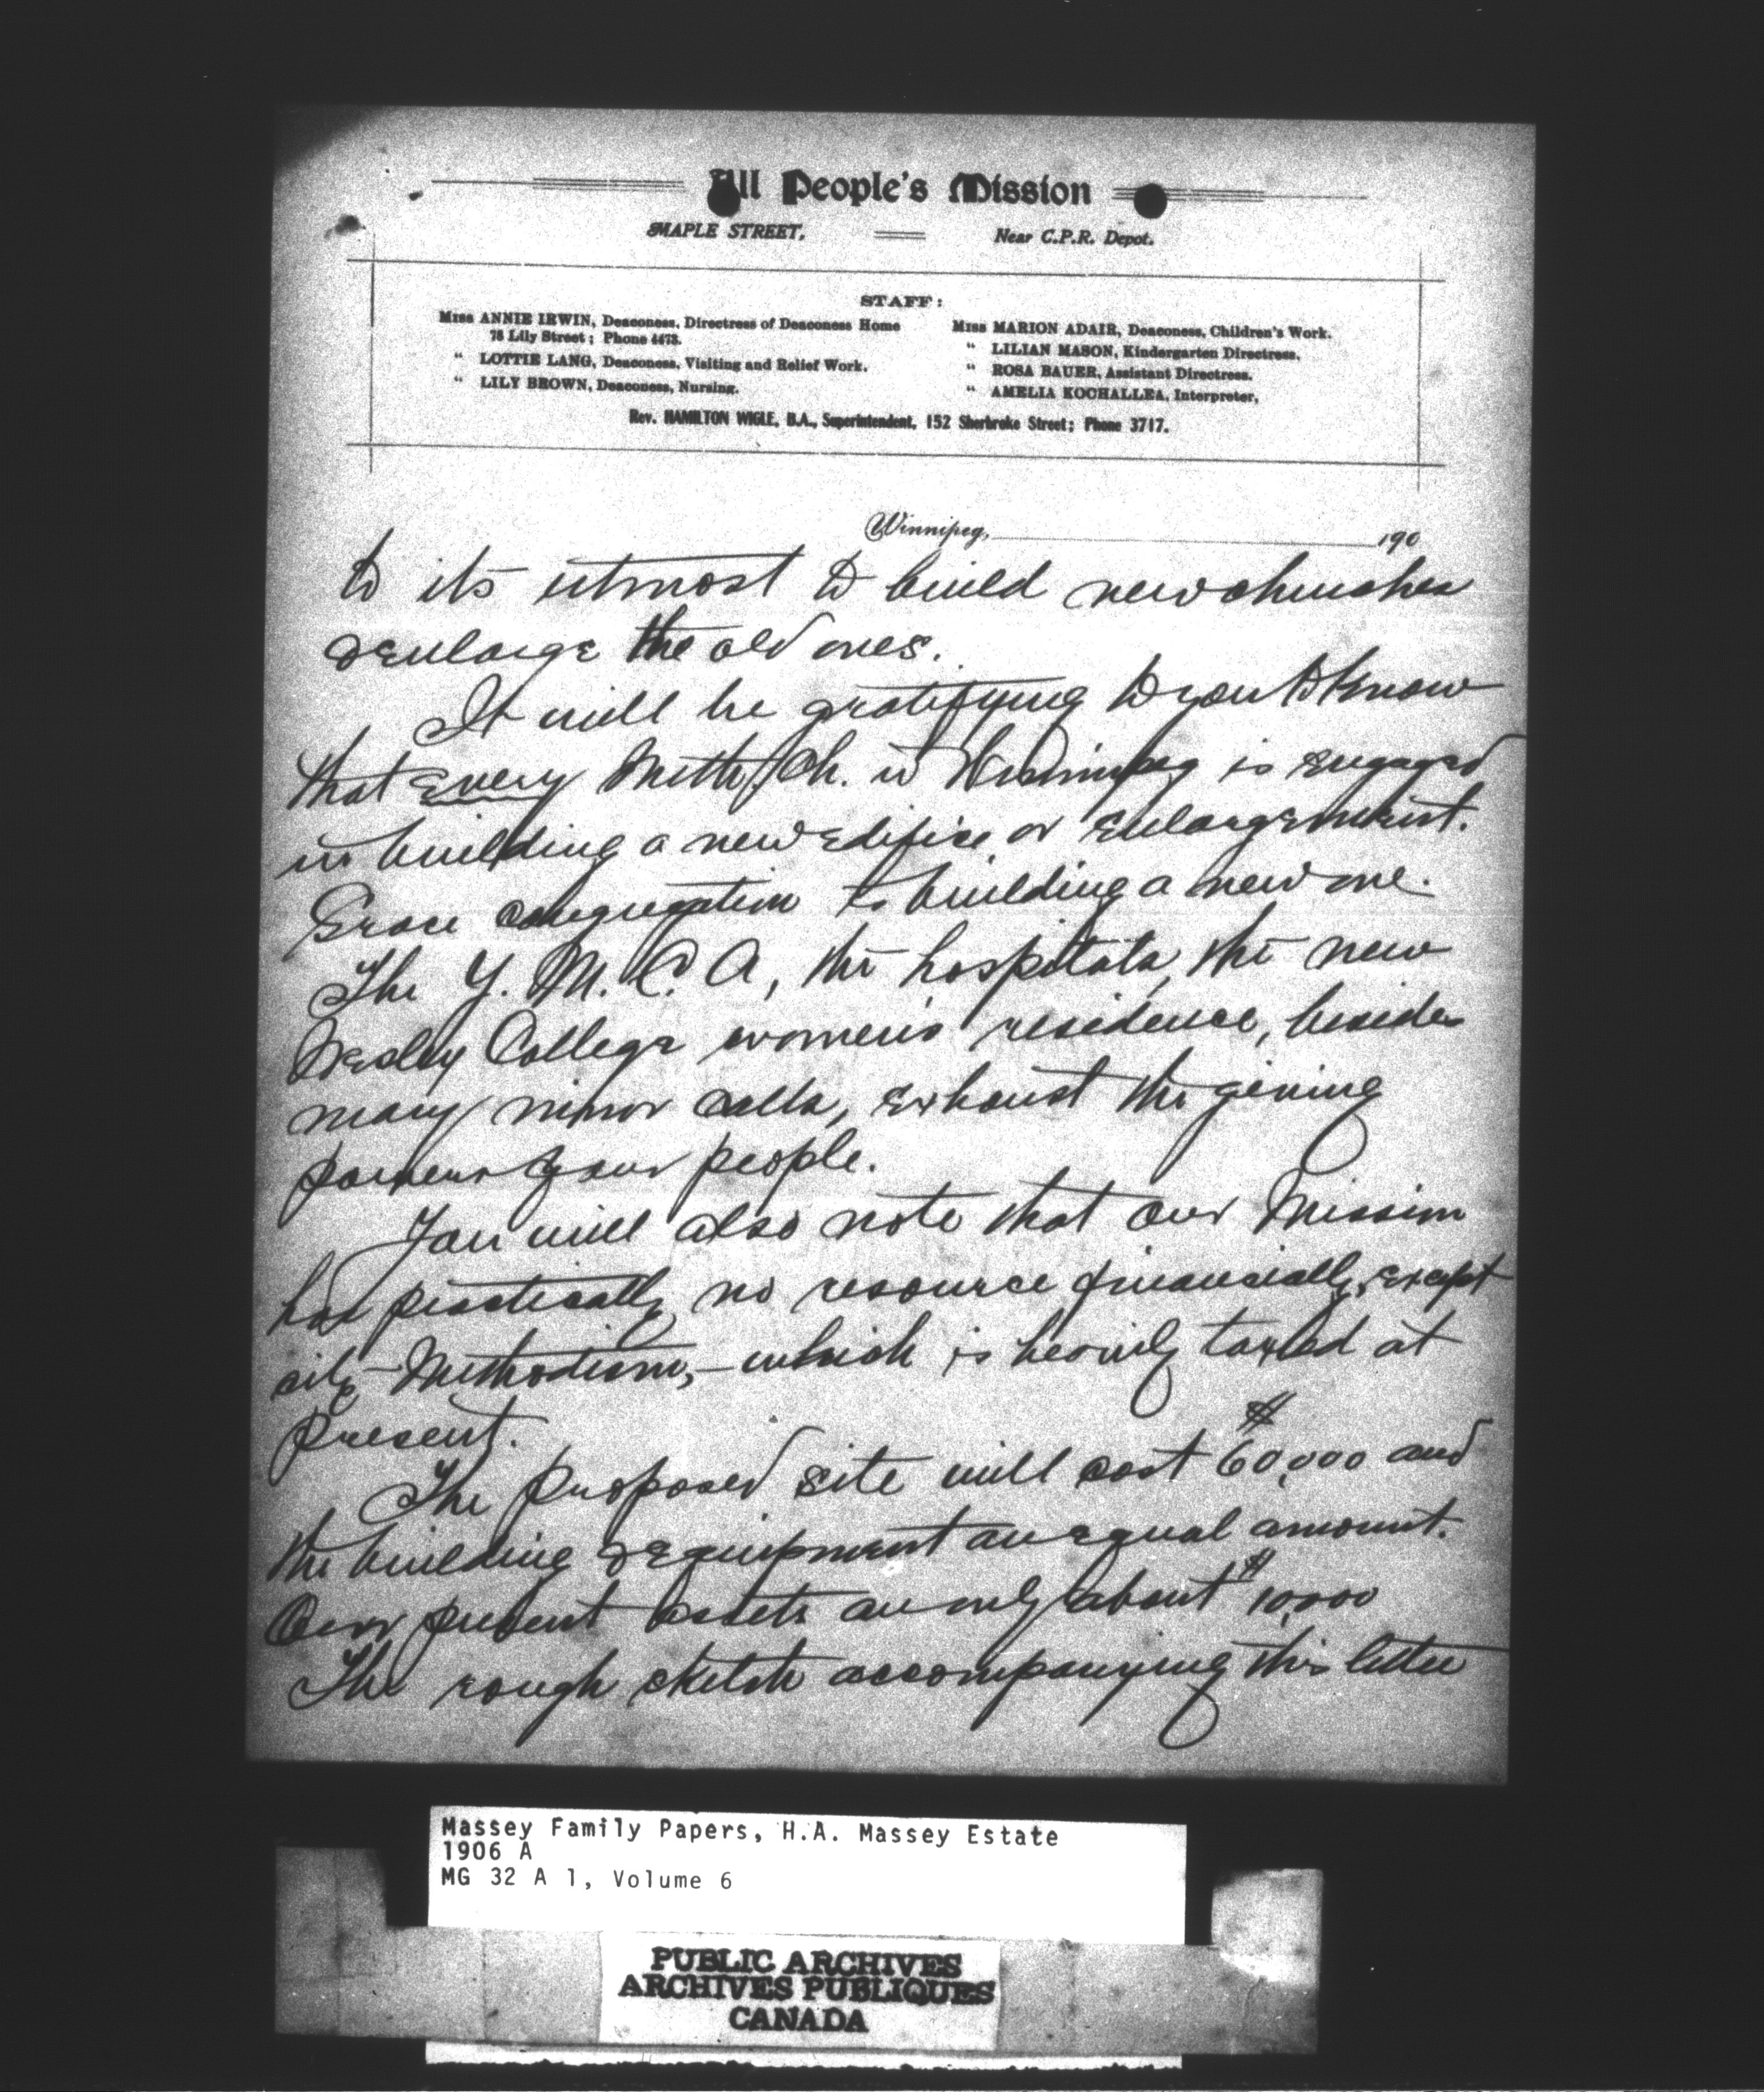 All People's Mission
MAPLE STREET, Near C.P.R. Depot.
STAFF:
Miss ANNIE IRWIN, Deaconess, Directress of Deaconess Home
78 Lily Street; Phone 4473.
" LOTTIE LANG, Deaconess, Visiting and Relief Work.
" LILY BROWN, Deaconess, Nursing.
Miss MARION ADAIR, Deaconess, Children's Work.
" LILIAN MASON, Kindergarten Directress.
" ROSA BAUER, Assistant Directress.
" AMELIA KOCHALLEA, Interpreter,
Rev. HAMILTON WIGLE, B.A., Superintendent, 152 Sherbroke Street; Phone 3717.
Winnipeg, 190
to its utmost to build new churches
& enlarge the old ones.
It will be gratifying to you to know
that every Meth. Ch. in Winnipeg is engaged
in building a new edifice or enlargement.
Grace congregation is building a new one.
The Y. M. C. A, the hospitals, the new
Wesley College women's residence, besides
many minor calls, exhaust the giving
powers of our people.
You will also note that our Mission
has practically no resource financially, except
city Methodism, – which is heavily taxed at
present.
The proposed site will cost $60,000 and
the building & equipment an equal amount.
Our present assets are only about $10,000
The rough sketch accompanying this letter
Massey Family Papers, H.A. Massey Estate
1906 A
MG 32 A 1, Volume 6
PUBLIC ARCHIVES
ARCHIVES PUBLIQUES
CANADA